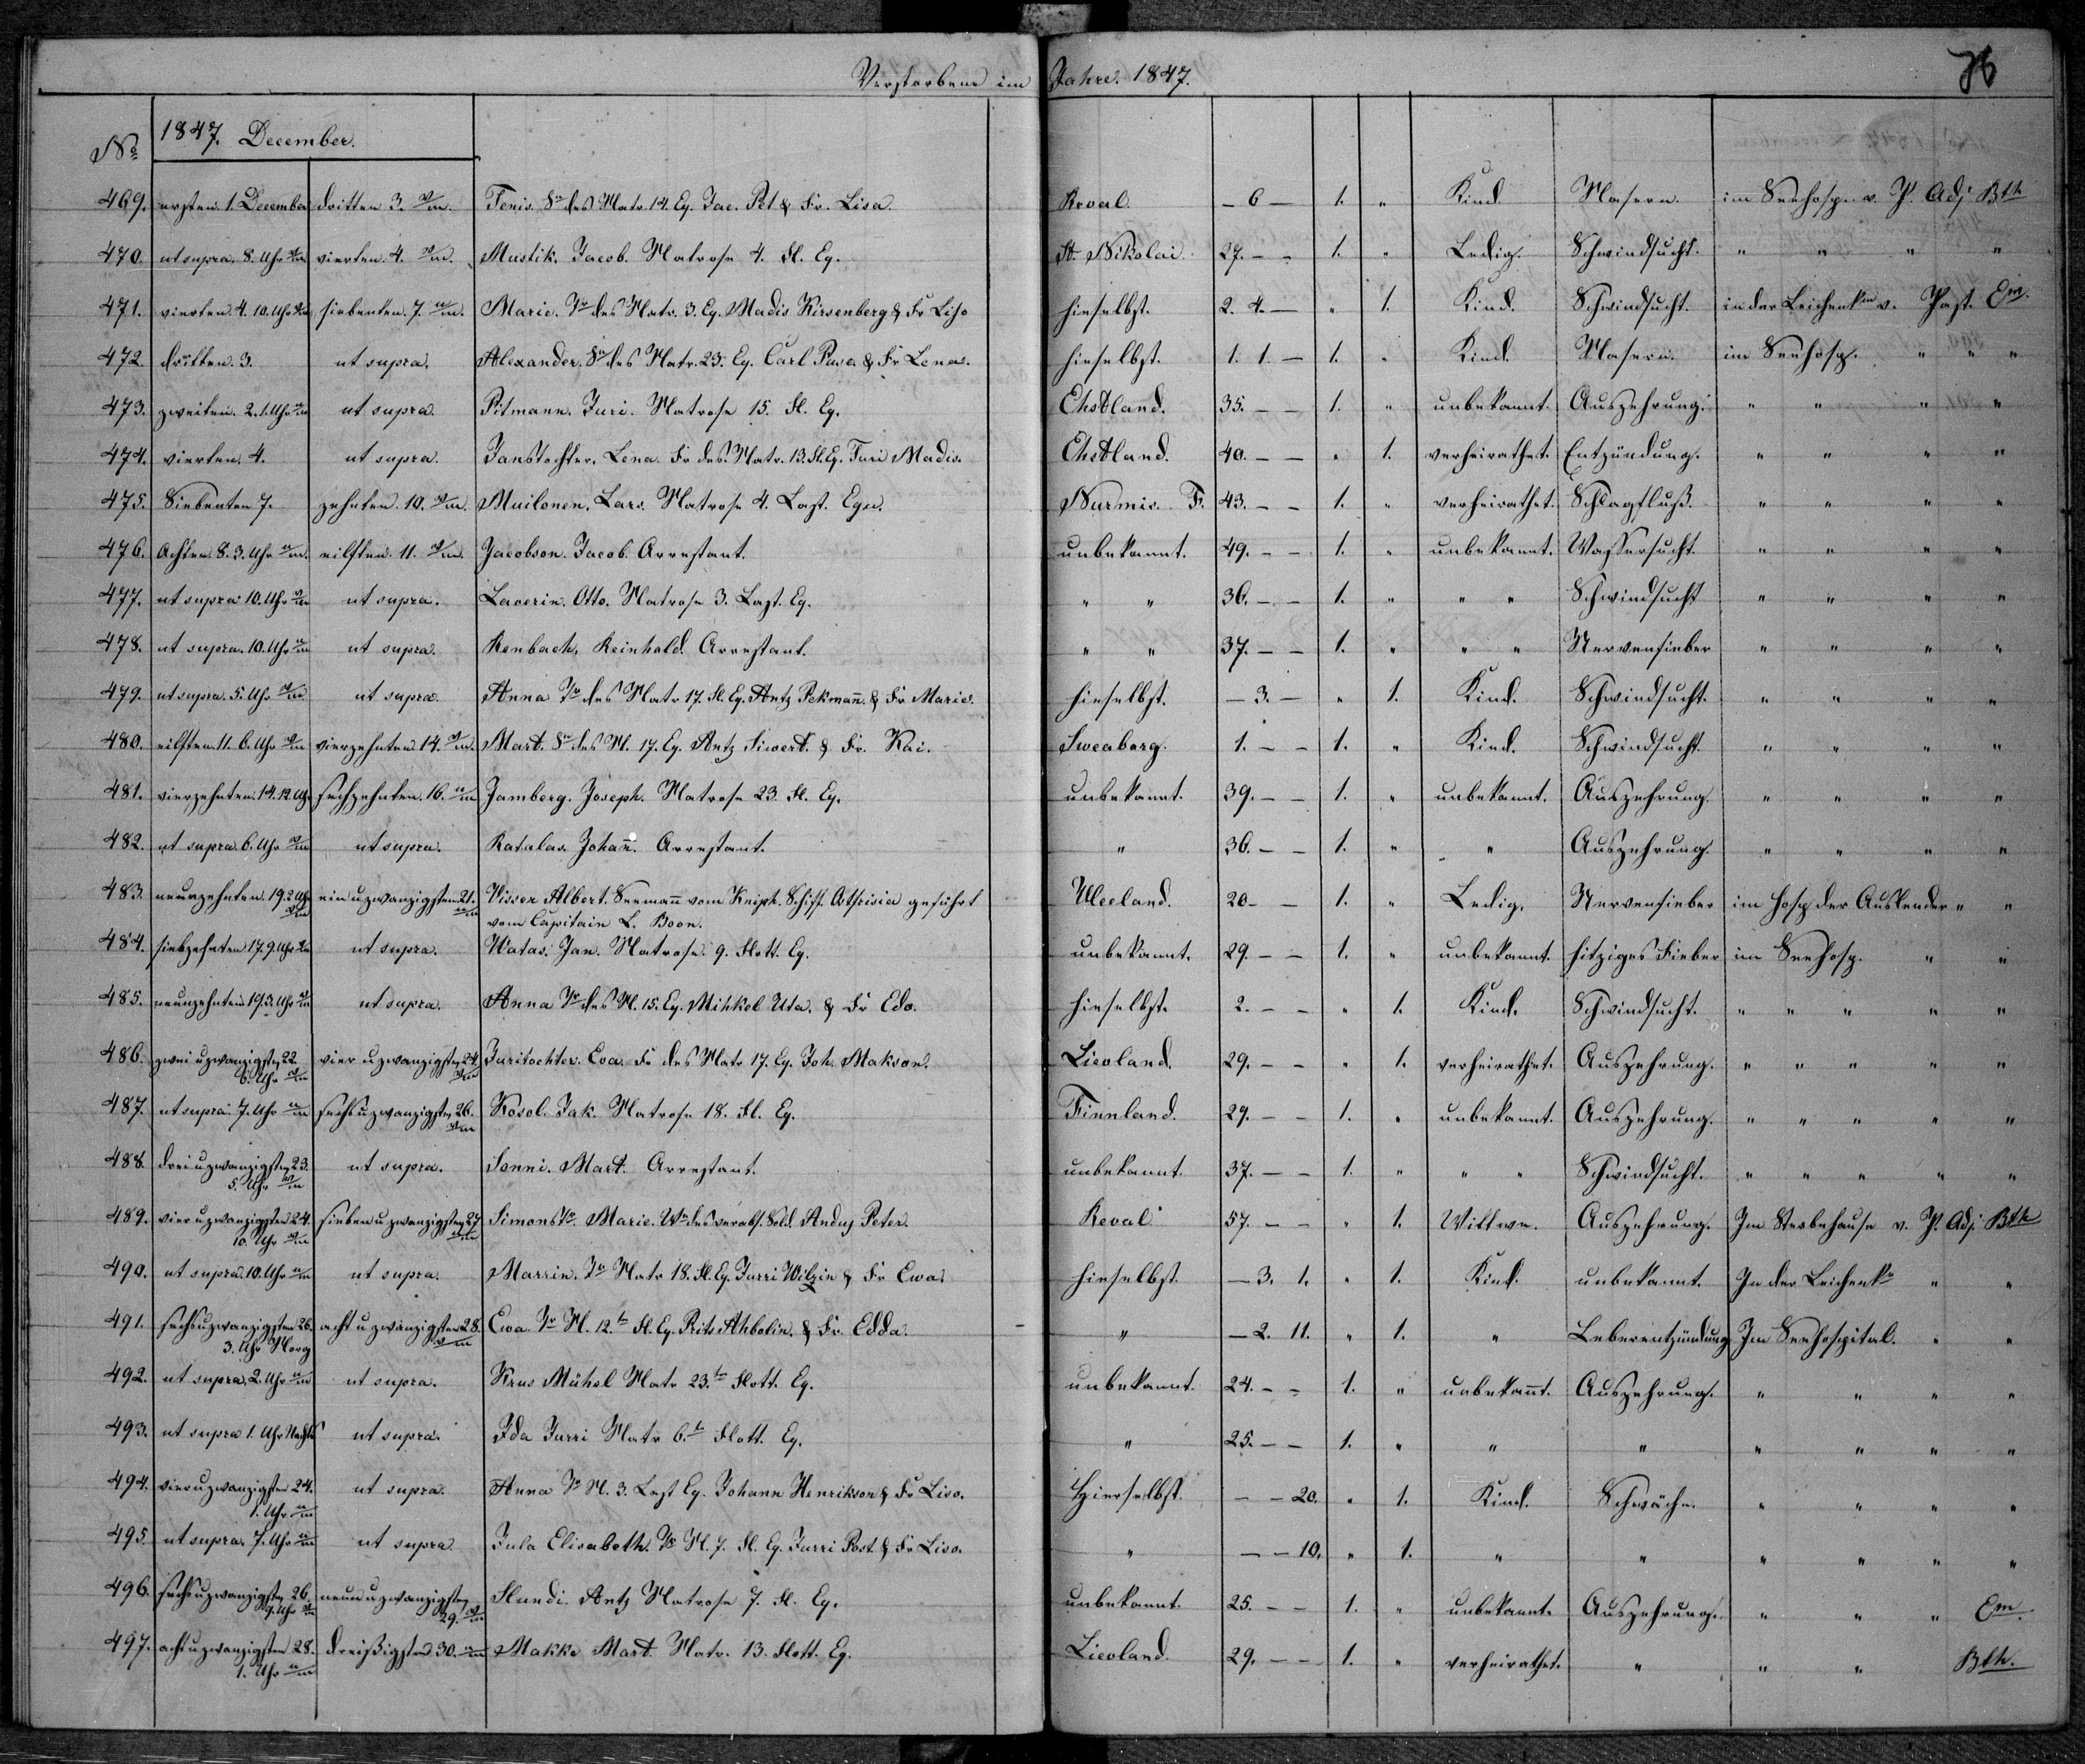 Verstorbene im Jahre 1847.
76
No 1847. December.
469. ersten. 1. December dritten 3. v/m. Tenis. Sn des Matr. 14. Eq. Jac. Pet & Fr. Lisa. Reval. - 6 - 1. " Kind Masern. im Seehosp. v. P. Adj Bth
470. ut supra. 8. Uhr v/m vierten. 4. v/m. Mustik. Jacob. Matrose 4. Fl. Eq. St. Nikolai. 27. - - 1. " Ledig. Schwindsucht. " " " "
471. vierten. 4. 10. Uhr v/m siebenten. 7. n/m. Marie. Tr des Matr. 3. Eq. Madis Kirsenberg & Fr Liso hieselbst. 2. 4. - " 1. Kind. Schwindsucht. in der Leichenk. v. Past. Em.
472. dritten. 3. ut supra. Alexander. Sn des Matr. 23. Eq. Carl Pava & Fr Lena. hieselbst. 1. 1. - 1. " Kind. Masern. im Seehosp. " " "
473. zweiten. 2. 1. Uhr n/m ut supra. Pitmann. Juri. Matrose 15. Fl. Eq. Ehstland. 35. - - 1. " unbekannt. Auszehrung. " " " "
474. vierten. 4. ut supra. Janstochter. Lena. Fr des Matr. 13. Fl. Eq. Turi Madis. Ehstland. 40. - - " 1. verheirathet. Entzündung. " " " "
475. Siebenten 7. zehnten. 10. v/m. Muilonen. Lars. Matrose 4. Last. Equ. Nurmis. F. 43. - - 1. " verheirathet. Schlagfluß. " " " "
476. Achten. 8. 3. Uhr n/m. eilften. 11. v/m. Jacobson. Jacob. Arrestant. unbekannt. 49. - - 1. " unbekannt. Wassersucht. " " " "
477. ut supra 10. Uhr v/m ut supra. Laverin. Otto. Matrose 3. Last. Eq. " " 36. - - 1. " " " Schwindsucht " " " "
478. ut supra. 10. Uhr n/m ut supra. Renbach, Reinhold. Arrestant. " " 37. - - 1. " " " Nervenfieber " " " "
479. ut supra. 5. Uhr v/m ut supra. Anna Tr des Matr 17. Fl. Eq. Antz Pekman̄. & Fr Marie. hieselbst. - 3. - " 1. Kind. Schwindsucht. " " " "
480. eilften 11. 6. Uhr v/m vierzehnten. 14. v/m. Mart. Sn des M. 17. Eq. Antz Siwert. & Fr. Kai. Sweaborg. 1. - - 1. " Kind. Schwindsucht. " " " "
481. vierzehnten. 14. 12. Uhr sechzehnten. 16. n/m Jamberg. Joseph. Matrose 23. Fl. Eq. unbekannt. 39. - - 1. " unbekannt. Auszehrung. " " " "
482. ut supra. 6. Uhr v/m ut supra. Ratalas. Johan̄. Arrestant. " 36. - - 1. " " Auszehrung. " " " "
483. neunzehnten. 19. 2. Uhr v/m ein u zwanzigsten 21. n/m Visser Albert. Seeman̄ vom Kniph. Schiff. geführt
vom Capitain L. Boon. Uleeland. 20 - - 1. " Ledig. Nervenfieber im Hosp. der Auslender " "
484. siebzehnten 17. 9. Uhr v/m ut supra. Watas. Jan. Matrose. 9. Flott. Eq. unbekannt. 29. - - 1. " unbekannt. hitziges Fieber im Seehosp. " "
485. neunzehnten 19. 3. Uhr v/m ut supra. Anna Tr des M. 15. Eq. Mihkel Uta. & Fr Edo. hieselbst. 2. - - " 1. Kind. Schwindsucht. " " " " "
486. zwei u zwanzigsten 22. 6. Uhr v/m vier u zwanzigsten 24. v/m Juritochter. Eva. Fr des Matr 17. Eq. Joh. Makson. Lievland. 29. - - " 1. verheirathet. Auszehrung. " " " " "
487. ut supra. 7. Uhr n/m sechs u zwanzigsten 26. v/m Kosel. Jak. Matrose 18. Fl. Eq. Finnland. 29. - - 1. " unbekannt. Auszehrung. " " " " "
488. drei u zwanzigsten 23. 5. Uhr n/m ut supra. Sonni. Mart. Arrestant. unbekannt. 37. - - 1. " " " Schwindsucht. " " " " "
489. vier u zwanzigsten 24. 10. Uhr v/m sieben u zwanzigsten 27. n/m Simonstr. Marie. Ww des verabs. Sold. Andus Peter. Reval. 57. - - " 1. Wittwe. Auszehrung. Im Sterbehause v. P. Adj. Bth
490. ut supra. 10. Uhr n/m ut supra. Marrin. Tr Matr 18. Fl. Eq. Jurri Wilzin & Fr Ewa. hieselbst. - 3. 1. " 1. Kind. unbekannt. In der Leichenk. " "
491. sechs u zwanzigsten 26. 3. Uhr Morg acht u zwanzigsten 28. v/m Ewa. Tr M. 12.t Fl. Eq. Rits Ahbolin. & Fr. Edda. " - 2. 11. " 1. " Leberentzündung. Im Seehospital. " "
492. ut supra, 2. Uhr n/m ut supra. Krus Mühel Matr 23.t Flott. Eq. unbekannt. 24. - - 1. " unbekan̄t. Auszehrung. " " " "
493. ut supra 1. Uhr Nachts ut supra. Ida Jurri Matr 6.t Flott. Eq. " 25. - - 1. " " " " " " "
494. vier u zwanzigsten 24. 1. Uhr n/m ut supra. Anna Tr M. 3. Last Eq. Johann Henrikson & Fr Liso. Hierselbst. - - 20. " 1. Kind. Schwäche. " " " "
495. ut supra. 7. Uhr n/m ut supra. Jula Elisabeth. Tr M. 7. Fl. Eq. Jurri Post. & Fr Liso. " - - 10. " 1. " " " " " "
496. sechs u zwanzigsten 26. 9. Uhr v/m neun u zwanzigsten 29. v/m Hundi. Antz Matrose 7. Fl. Eq. unbekannt. 25. - - 1. " unbekannt. Auszehrung. " " " Em.
497. acht u zwanzigsten 28. 1. Uhr n/m dreißigsten 30. n/m Makke Mart. Matr. 13. Flott. Eq. Lievland. 29. - - 1. " verheirathet. " " " Bth.